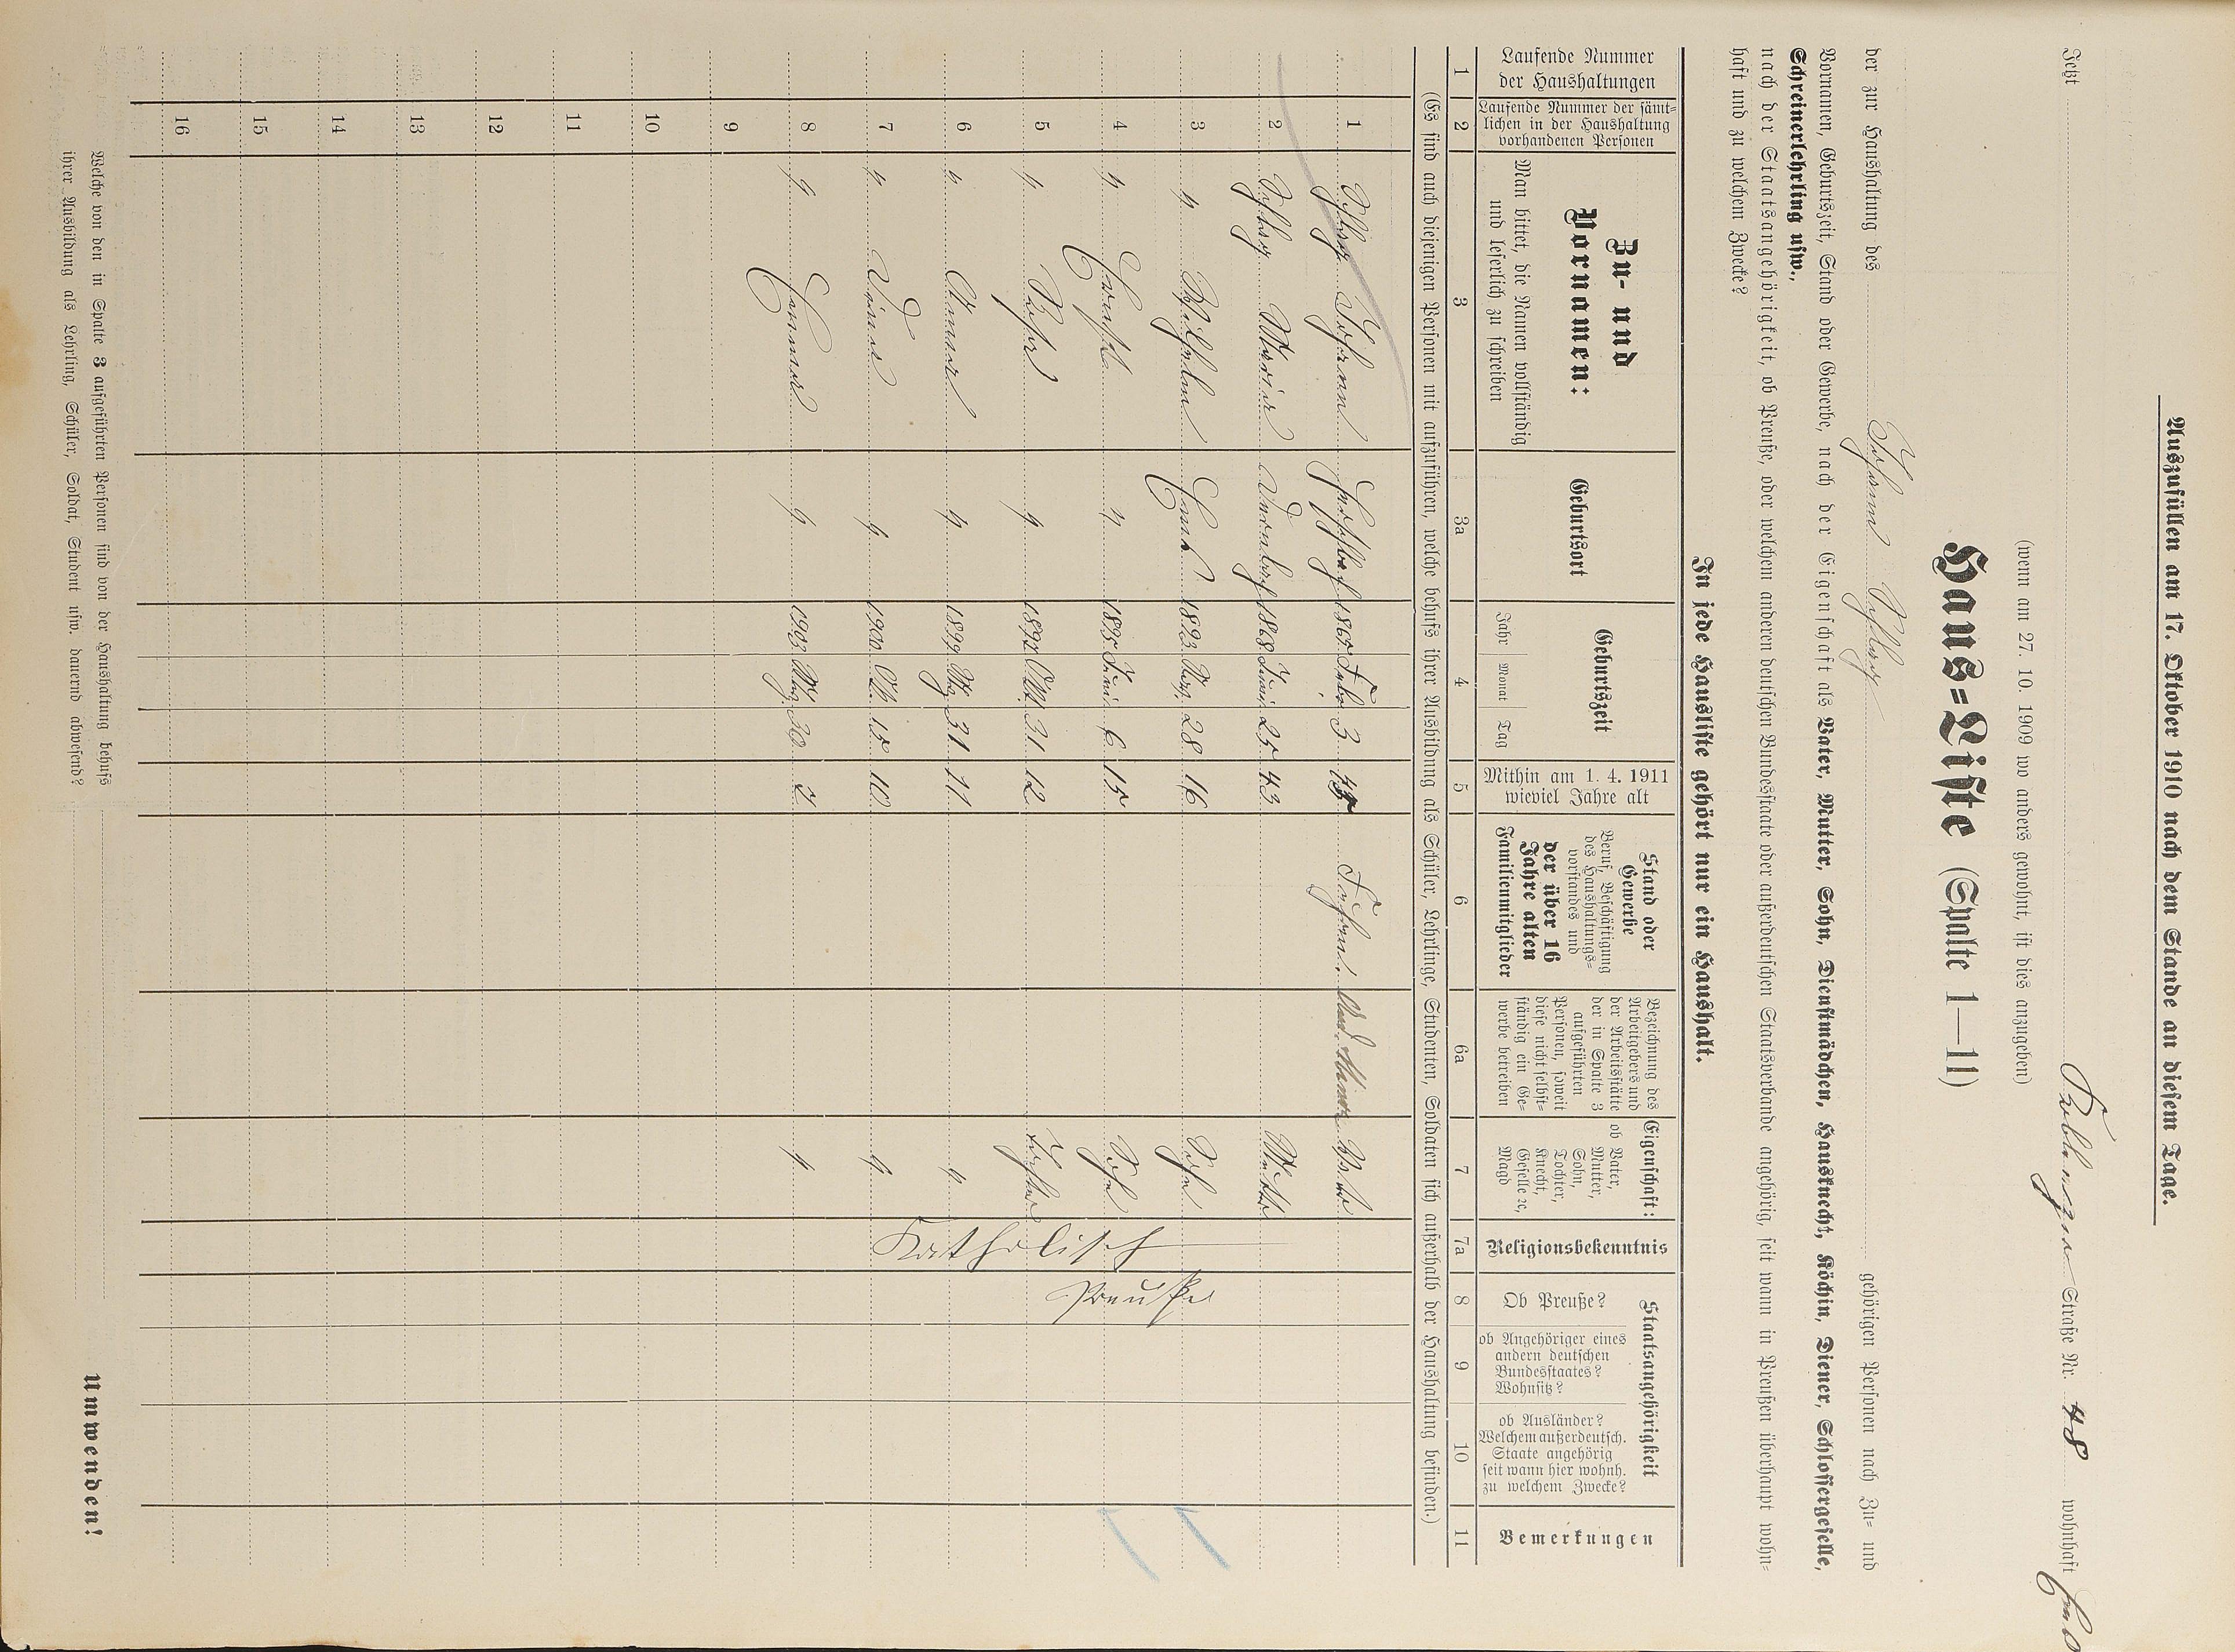 Auszufüllen am 17. Oktober 1910 nach dem Stande an diesem Tage.
Jetzt Straße Nr. 48 wohnhaft
(wenn am 27. 10. 1909 wo anders gewohnt, ist dies anzugeben)
Haus=Liste (Spalte 1—11)
der zur Haushaltung des Johann gehörigen Personen nach Zu= und
Vornamen, Geburtszeit, Stand oder Gewerbe, nach der Eigenschaft als Vater, Mutter, Sohn, Dienstmädchen, Hausknecht, Köchin, Diener, Schlossergeselle,
Schreinerlehrling usw.,
nach der Staatsangehörigkeit, ob Preuße, oder welchem anderen deutschen Bundesstaate oder außerdeutschen Staatsverbande angehörig, seit wann in Preußen überhaupt wohn=
haft und zu welchem Zwecke?
In jede Hausliste gehört nur ein Haushalt.
Laufende Nummer der Haushaltungen
Laufende Nummer der sämt=lichen in der Haushaltung vorhandenen Personen
Zu- und Vornamen:
Man bittet, die Namen vollständig und leserlich zu schreiben
Geburtsort
Geburtszeit
Jahr Monat Tag
Mithin am 1. 4. 1911 wieviel Jahre alt
Stand oder Gewerbe
Beruf, Beschäftigung des Haushaltungs=vorstandes und
der über 16 Jahre alten Familienmitglieder
Bezeichnung des Arbeitgebers und der Arbeitsstätte der in Spalte 3 aufgeführten Personen, soweit diese nicht selbst=ständig ein Ge=werbe betreiben
Eigenschaft:
ob Vater, Mutter, Sohn, Tochter, Knecht, Geselle ꝛc, Magd
Religionsbekenntnis
Staatsangehörigkeit
Ob Preuße?
ob Angehöriger eines andern deutschen Bundesstaates? Wohnsitz?
ob Ausländer? Welchem außerdeutsch. Staate angehörig seit wann hier wohnh. zu welchem Zwecke?
Bemerkungen
1 2 3 3a 4 5 6 6a 7 7a 8 9 10 11
(Es sind auch diejenigen Personen mit aufzuführen, welche behufs ihrer Ausbildung als Schüler, Lehrlinge, Studenten, Soldaten sich außerhalb der Haushaltung befinden.)
1 Johann 3 Vater
2 Maria 1868 Juni 25 43 Mutter
3 " Wilhelm Ems 28 16 Sohn
4 " " 1895 Juni 6 15 Sohn
5 " " Okt. 31 12 Tochter
6 " Anna " 1899 31 11 "
7 " " 1900 Okt. 15 10 "
8 " " 1903 30 7 "
Katholisch
Preuße
9
10
11
12
13
14
15
16
Welche von den in Spalte 3 aufgeführten Personen sind von der Haushaltung behufs
ihrer Ausbildung als Lehrling, Schüler, Soldat, Student usw. dauernd abwesend?
Umwenden!